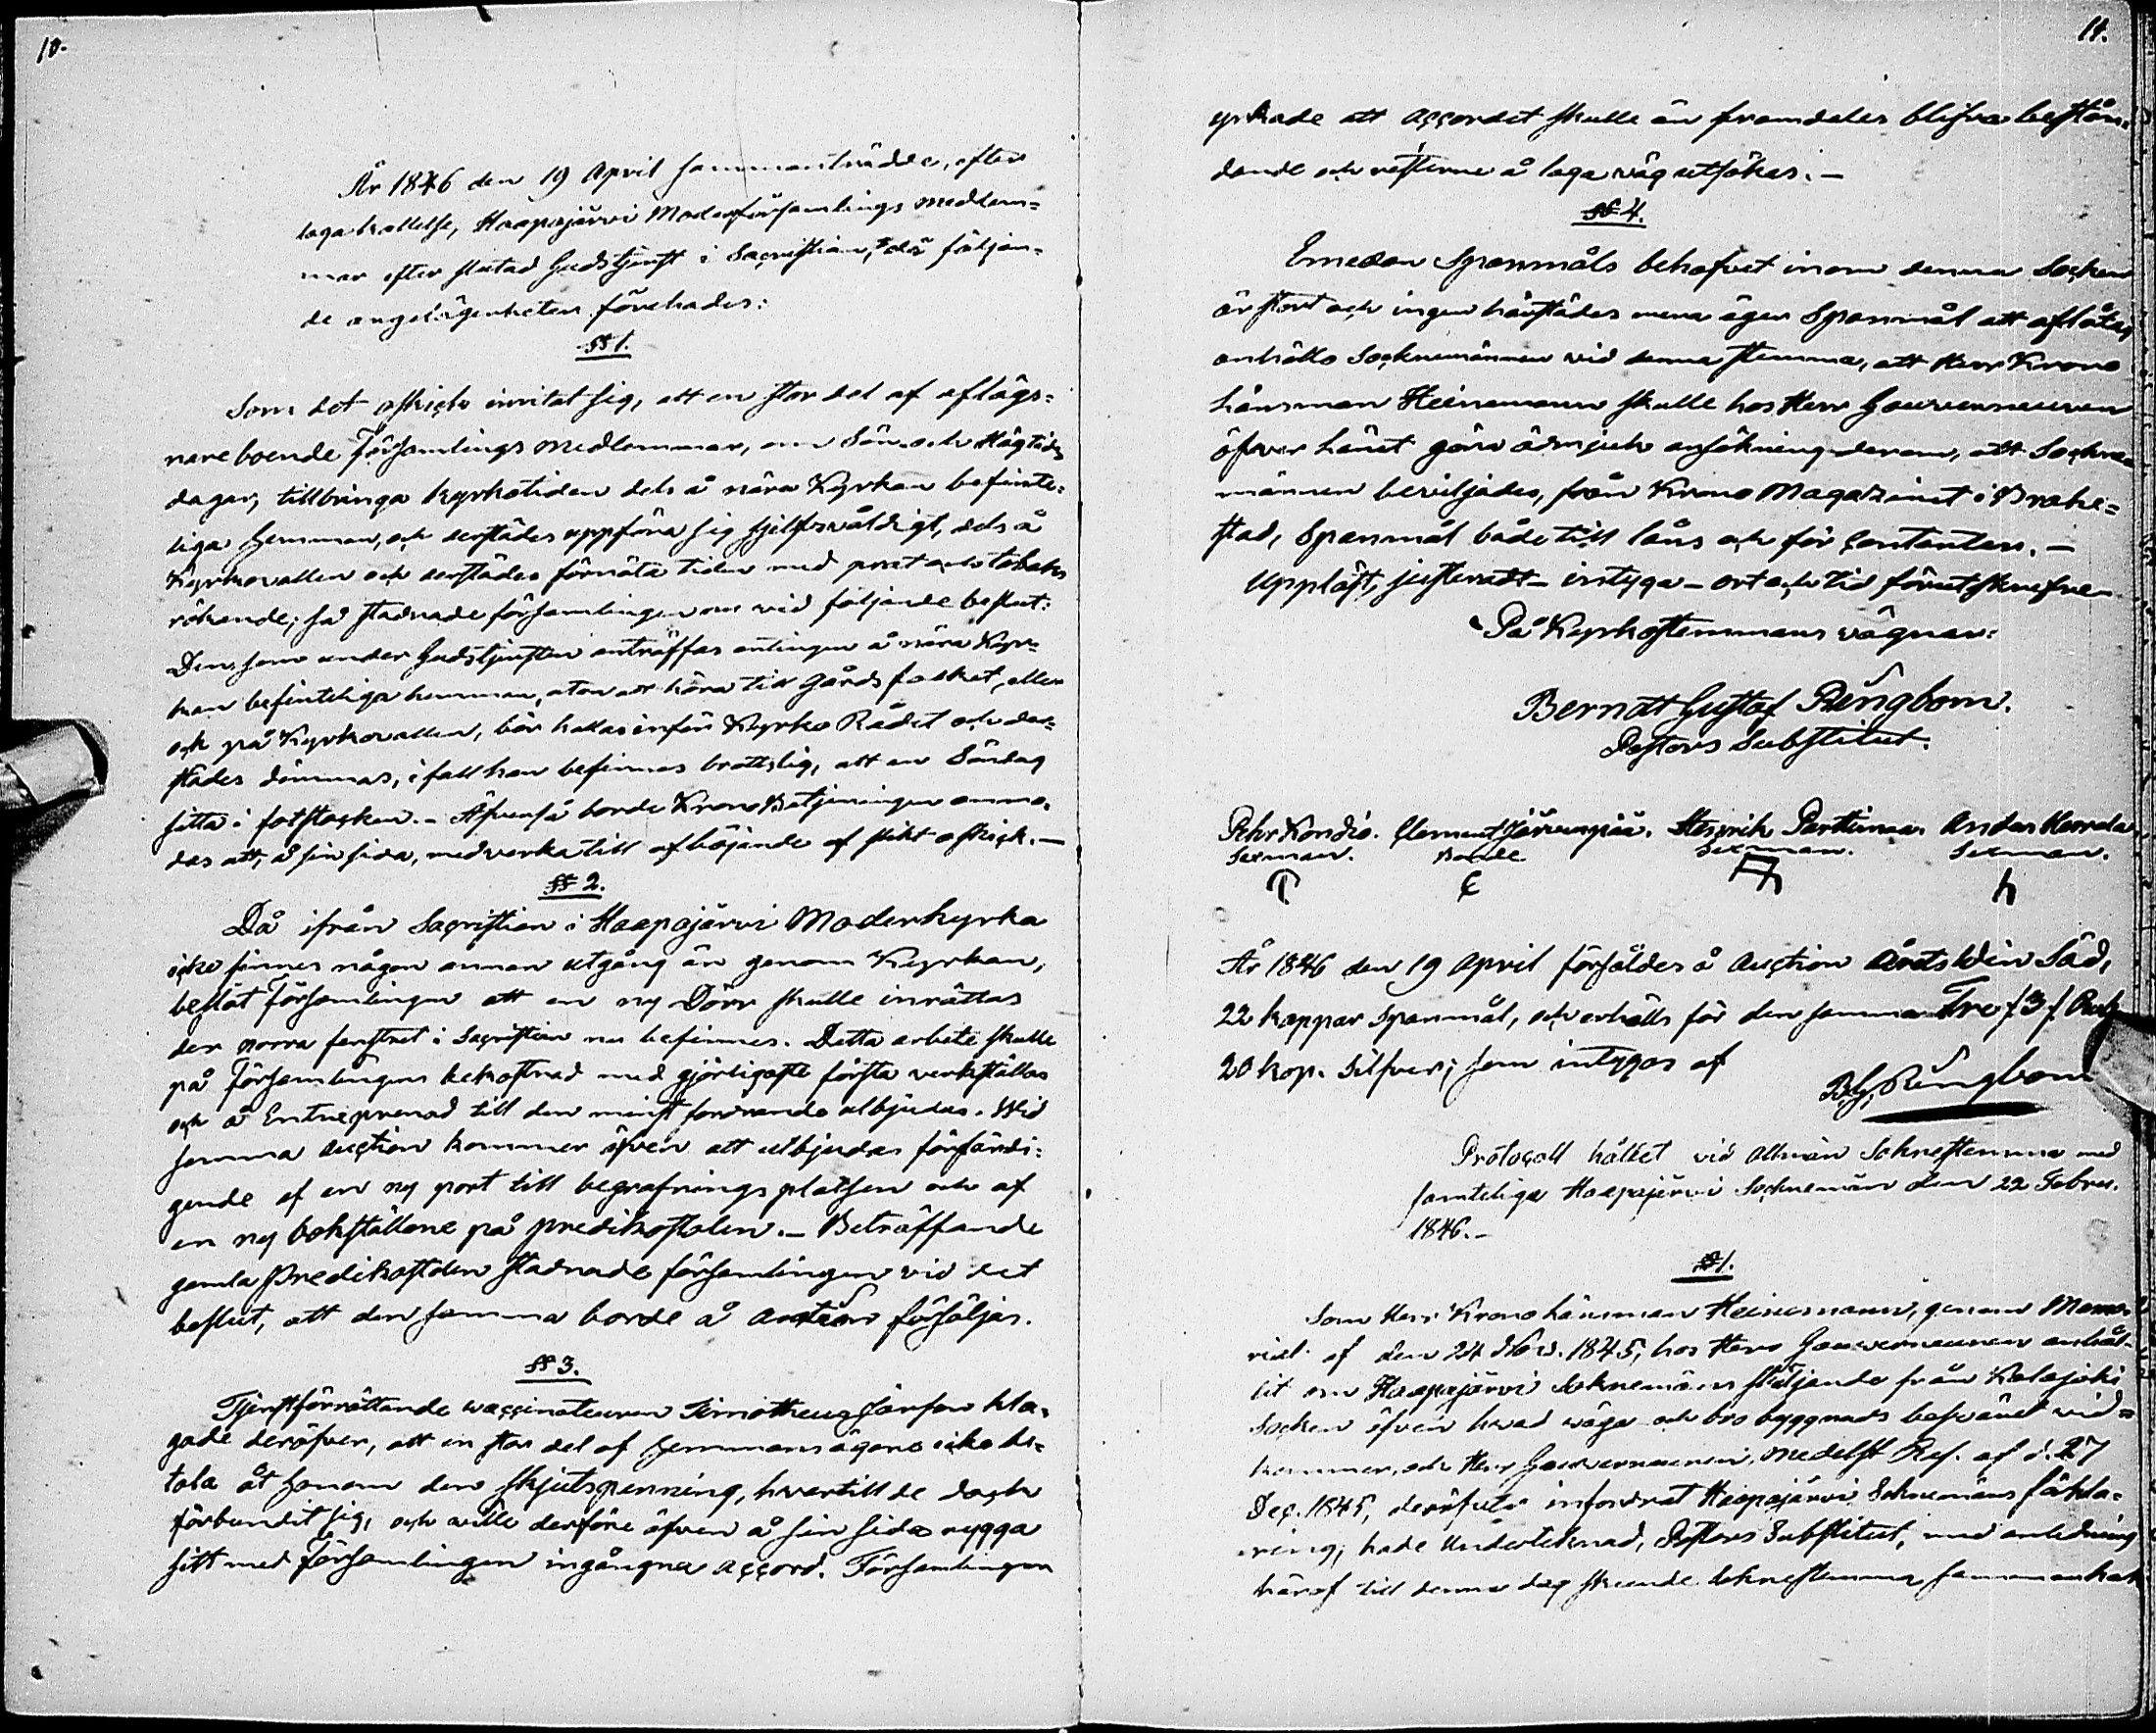 10.
År 1846 den 19 April sammanträdde, efter
laga kallelse, Haapajärvi Moderförsamlings medlem=
mar efter slutad Gudstjenst i Sacristian, der följan=
de angelägenheter förehades:
§§ 1.
Som det oskick inritat sig, att en stor del af aflägs=
nare boende Församlings medlemmar, om Sön- och Högtids
dagar, tillbringa kyrkotiden dels å nära Kyrkan befinte=
liga hemman, och derstädes uppföra sig sjelfsvåldigt, dels å
Kyrkovallen och derstädes förnöta tiden med prat och tobaks
rökande; så stadnade församlingen om vid följande beslut:
Den som under Gudstjensten anträffas antingen å nära Kyr=
kan befinteliga hemman, utan att höra till gårdsfolket, eller
och på Kyrkovallen, bör kallas inför Kyrko Rådet och der=
städes dömmas, i fall han befinnes brottslig, att en Söndag
sitta i fotstocken. - Äfvenså borde Krono Betjeningen anmo=
das att, å sin sida, medverka till afböjande af slikt oskick. —
§§ 2.
Då ifrån Sacristian i Haapajärvi Moderkyrka
icke finnes någon annan utgång än genom Kyrkan,
beslöt Församlingen att en ny Dörr skulle inrättas
der norra fenstret i Sacristian nu befinnes. Detta arbete skulle
på Församlingens bekostnad med görligaste första verkställas
och å Entreprenad till den minst fordrande utbjudas. Wid
samma auction kommer äfven att utbjudas förfärdi=
gande af en ny port till begrafningsplatsen och af
en ny bokställare på predikostolen. - Beträffande
gamla Predikostolen stadnade församlingen vid det
beslut, att densamma borde å auction försäljas.
§§ 3.
Tjenstförrättande vaccinateuren Timotheus Jansson kla=
gade deröfver, att en stor del af hemmansägare icke be=
tala åt honom den skjutspenning, hvartill de dock
förbundit sig, och ville derföre äfven å sin sida rygga
sitt med Församlingen ingångna accord. Församlingen
11.
yrkade att accordet skulle än framdeles blifva bestån=
dande och resterne å laga väg utsökas. —
§§ 4.
Emedan Spanmåls behofvet inom denna Socken
är stort och ingen härstädes mera äger Spanmål att aflåta,
anhöllo Socknemännen vid denna stemma, att Herr Krono
Länsman Heinemann skulle hos Herr Gouverneuren
öfver Länet göra ödmjuk ansökning derom, att Sockne=
männen beviljades, från Krono Magazinet i Brahe=
stad, Spanmål både till låns och för contanten. —
Uppläst, justeradt - intyga - ort och tid förutskrefne
På Kyrkostemmans vägnar:
Bernatt Gustaf Rungbom.
Pastors Substitut.
Pehr Kondio. Clement Järvenpää. Henrik Parttimaa. Anders Haarala
Sexman. Bonde Sexman. Sexman.
År 1846 den 19 April försåldes å Auction årets Win Säd,
22 kappar Spanmål, och erhölls för den samma Tre /3/ Rub
20 kop. Silfver; som intygas af
B.G. Rungbom
Protocoll hållet vid allmän Sockenstemma med
samteliga Haapajärvi Socknemän den 22 Febru.
1846. -
§ 1.
Som Herr Krono Länsman Heinemann, genom Memo=
rial af den 24 Nov. 1845, hos Herr Gouverneuren anhål=
lit om Haapajärvi Socknemäns skiljande från Kalajoki
Socken äfven hvad väga och bro byggnads besväret vid=
kommer, och Herr Gouverneuren, medelst Res. af d. 27
Dec. 1845, deröfver infordrat Haapajärvi Socknemäns förkla=
ring; hade Undertecknad, Pastors Substitut, med anledning
häraf till denna dag skeende Sockenstemma sammankal